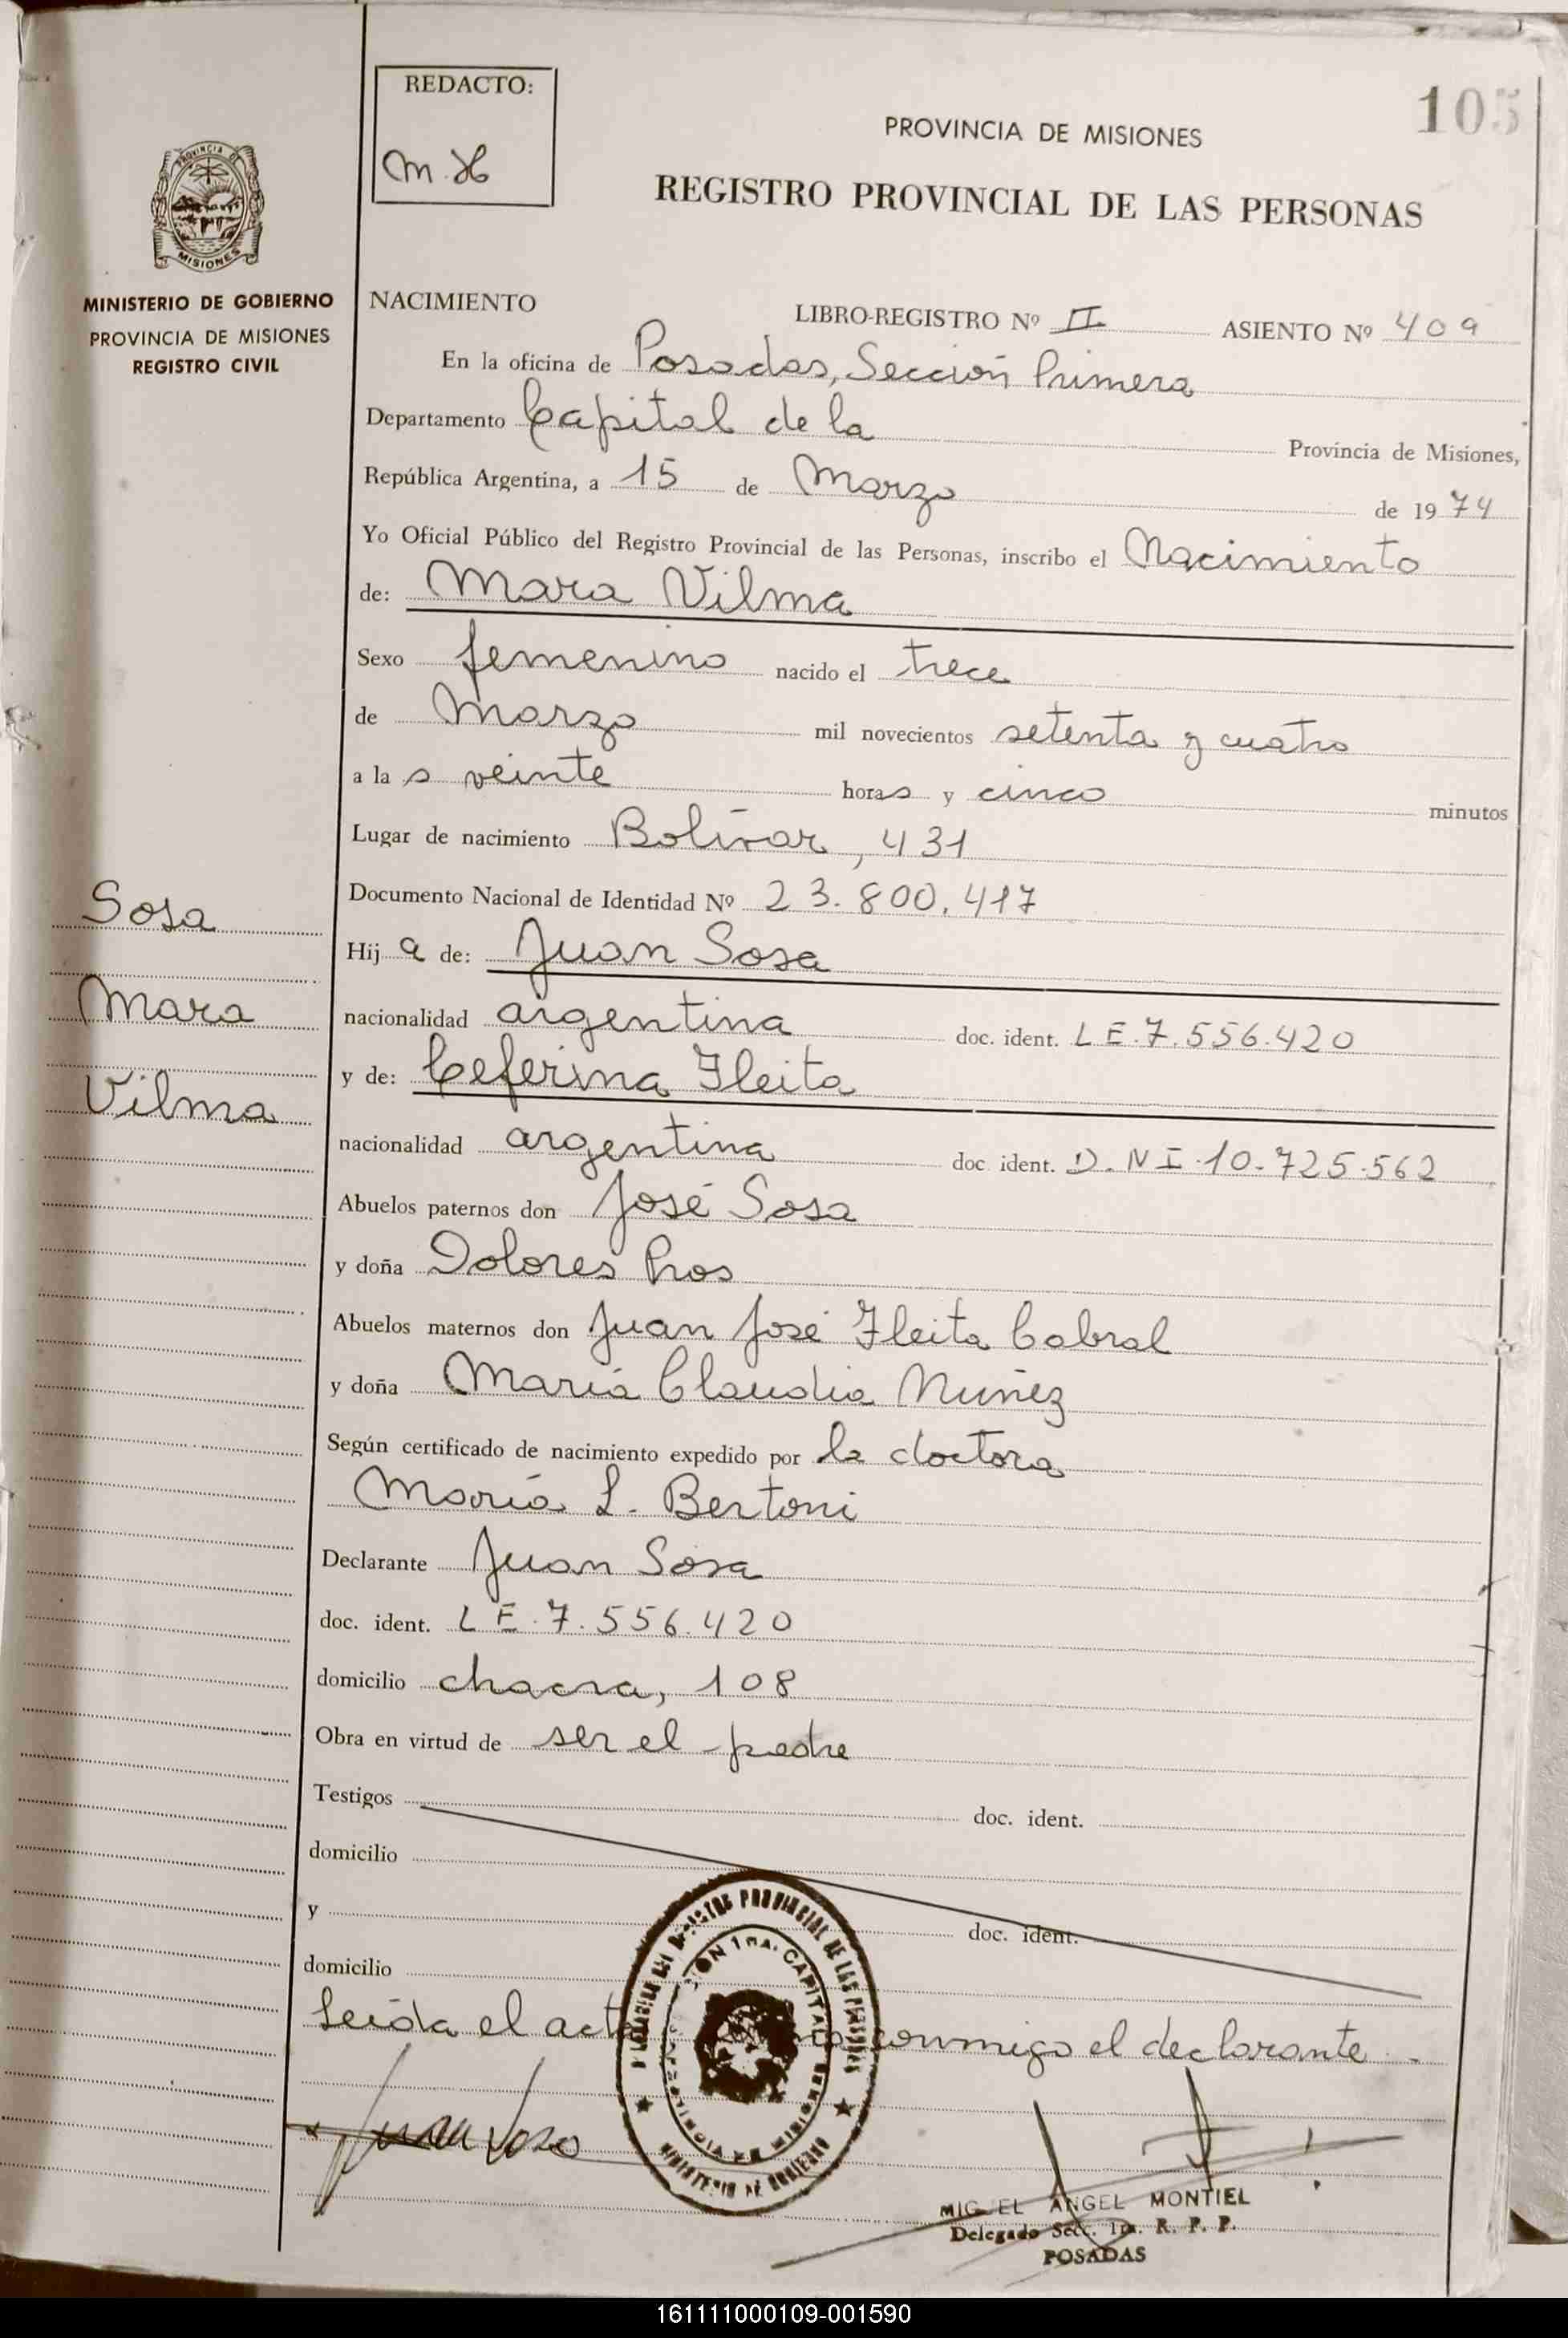 105
REDACTO:
M.H
PROVINCIA DE MISIONES
REGISTRO PROVINCIAL DE LAS PERSONAS
PROVINCIA DE
MISIONES
MINISTERIO DE GOBIERNO
PROVINCIA DE MISIONES
REGISTRO CIVIL
NACIMIENTO LIBRO-REGISTRO Nº II ASIENTO Nº 409
En la oficina de Posadas, Sección Primera
Departamento Capital de la Provincia de Misiones,
República Argentina, a 15 de Marzo de 1974
Yo Oficial Público del Registro Provincial de las Personas, inscribo el Nacimiento
de: Mara Vilma
Sexo femenino nacido el trece
de Marzo mil novecientos setenta y cuatro
a las veinte horas y cinco minutos
Lugar de nacimiento Bolívar, 431
Documento Nacional de Identidad Nº 23.800.417
Sosa
Mara
Vilma
Hija de: Juan Sosa
nacionalidad argentina doc. ident. L E. 7.556.420
y de: Ceferina Fleita
nacionalidad argentina doc. ident. D. N I. 10.725.562
Abuelos paternos don José Sosa
y doña Dolores Pros
Abuelos maternos don Juan José Fleita Cabral
y doña María Claudia Nuñez
Según certificado de nacimiento expedido por la doctora
María L. Bertoni
Declarante Juan Sosa
doc. ident. L E. 7.556.420
domicilio chacra, 108
Obra en virtud de ser el padre
Testigos doc. ident.
domicilio
y doc. ident.
domicilio
Leída el acta conmigo el declarante.
REGISTRO PROVINCIAL DE LAS PERSONAS
1RA. CAPITAL
PROVINCIA DE MISIONES
MINISTERIO DE GOBIERNO
Juan Soso
MIGUEL ANGEL MONTIEL
Delegado Secc. 1ra. R. P. P.
POSADAS
161111000109-001590